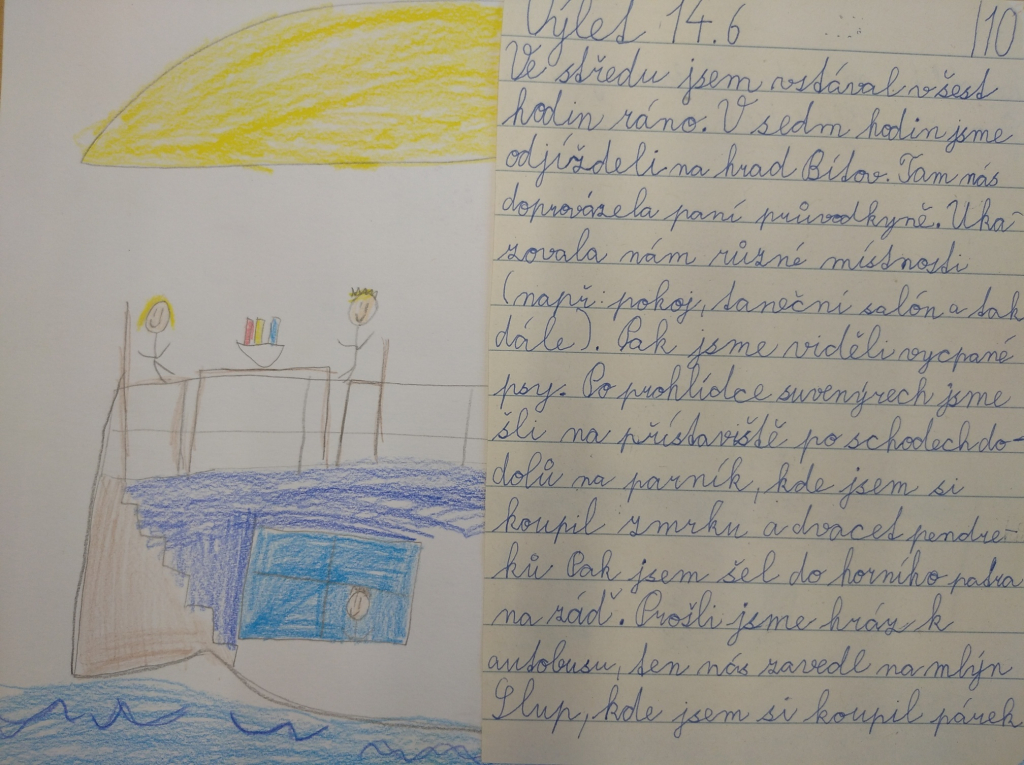 Výlet 14.6
10
Ve středu jsem vstával v šest
hodin ráno. V sedm hodin jsme
odjížděli na hrad Bítov. Tam nás
doprovázela paní průvodkyně. Uka-
zovala nám různé místnosti
(např: pokoj, taneční salón a tak
dále). Pak jsme viděli vycpané
psy. Po prohlídce suvenýrech jsme
šli na přístaviště po schodech do-
dolů na parník, kde jsem si
koupil zmrku a dvacet pendre-
ků Pak jsem šel do horního patra
na záď. Prošli jsme hráz k
autobusu, ten nás zavedl na mlýn
Slup, kde jsem si koupil párek